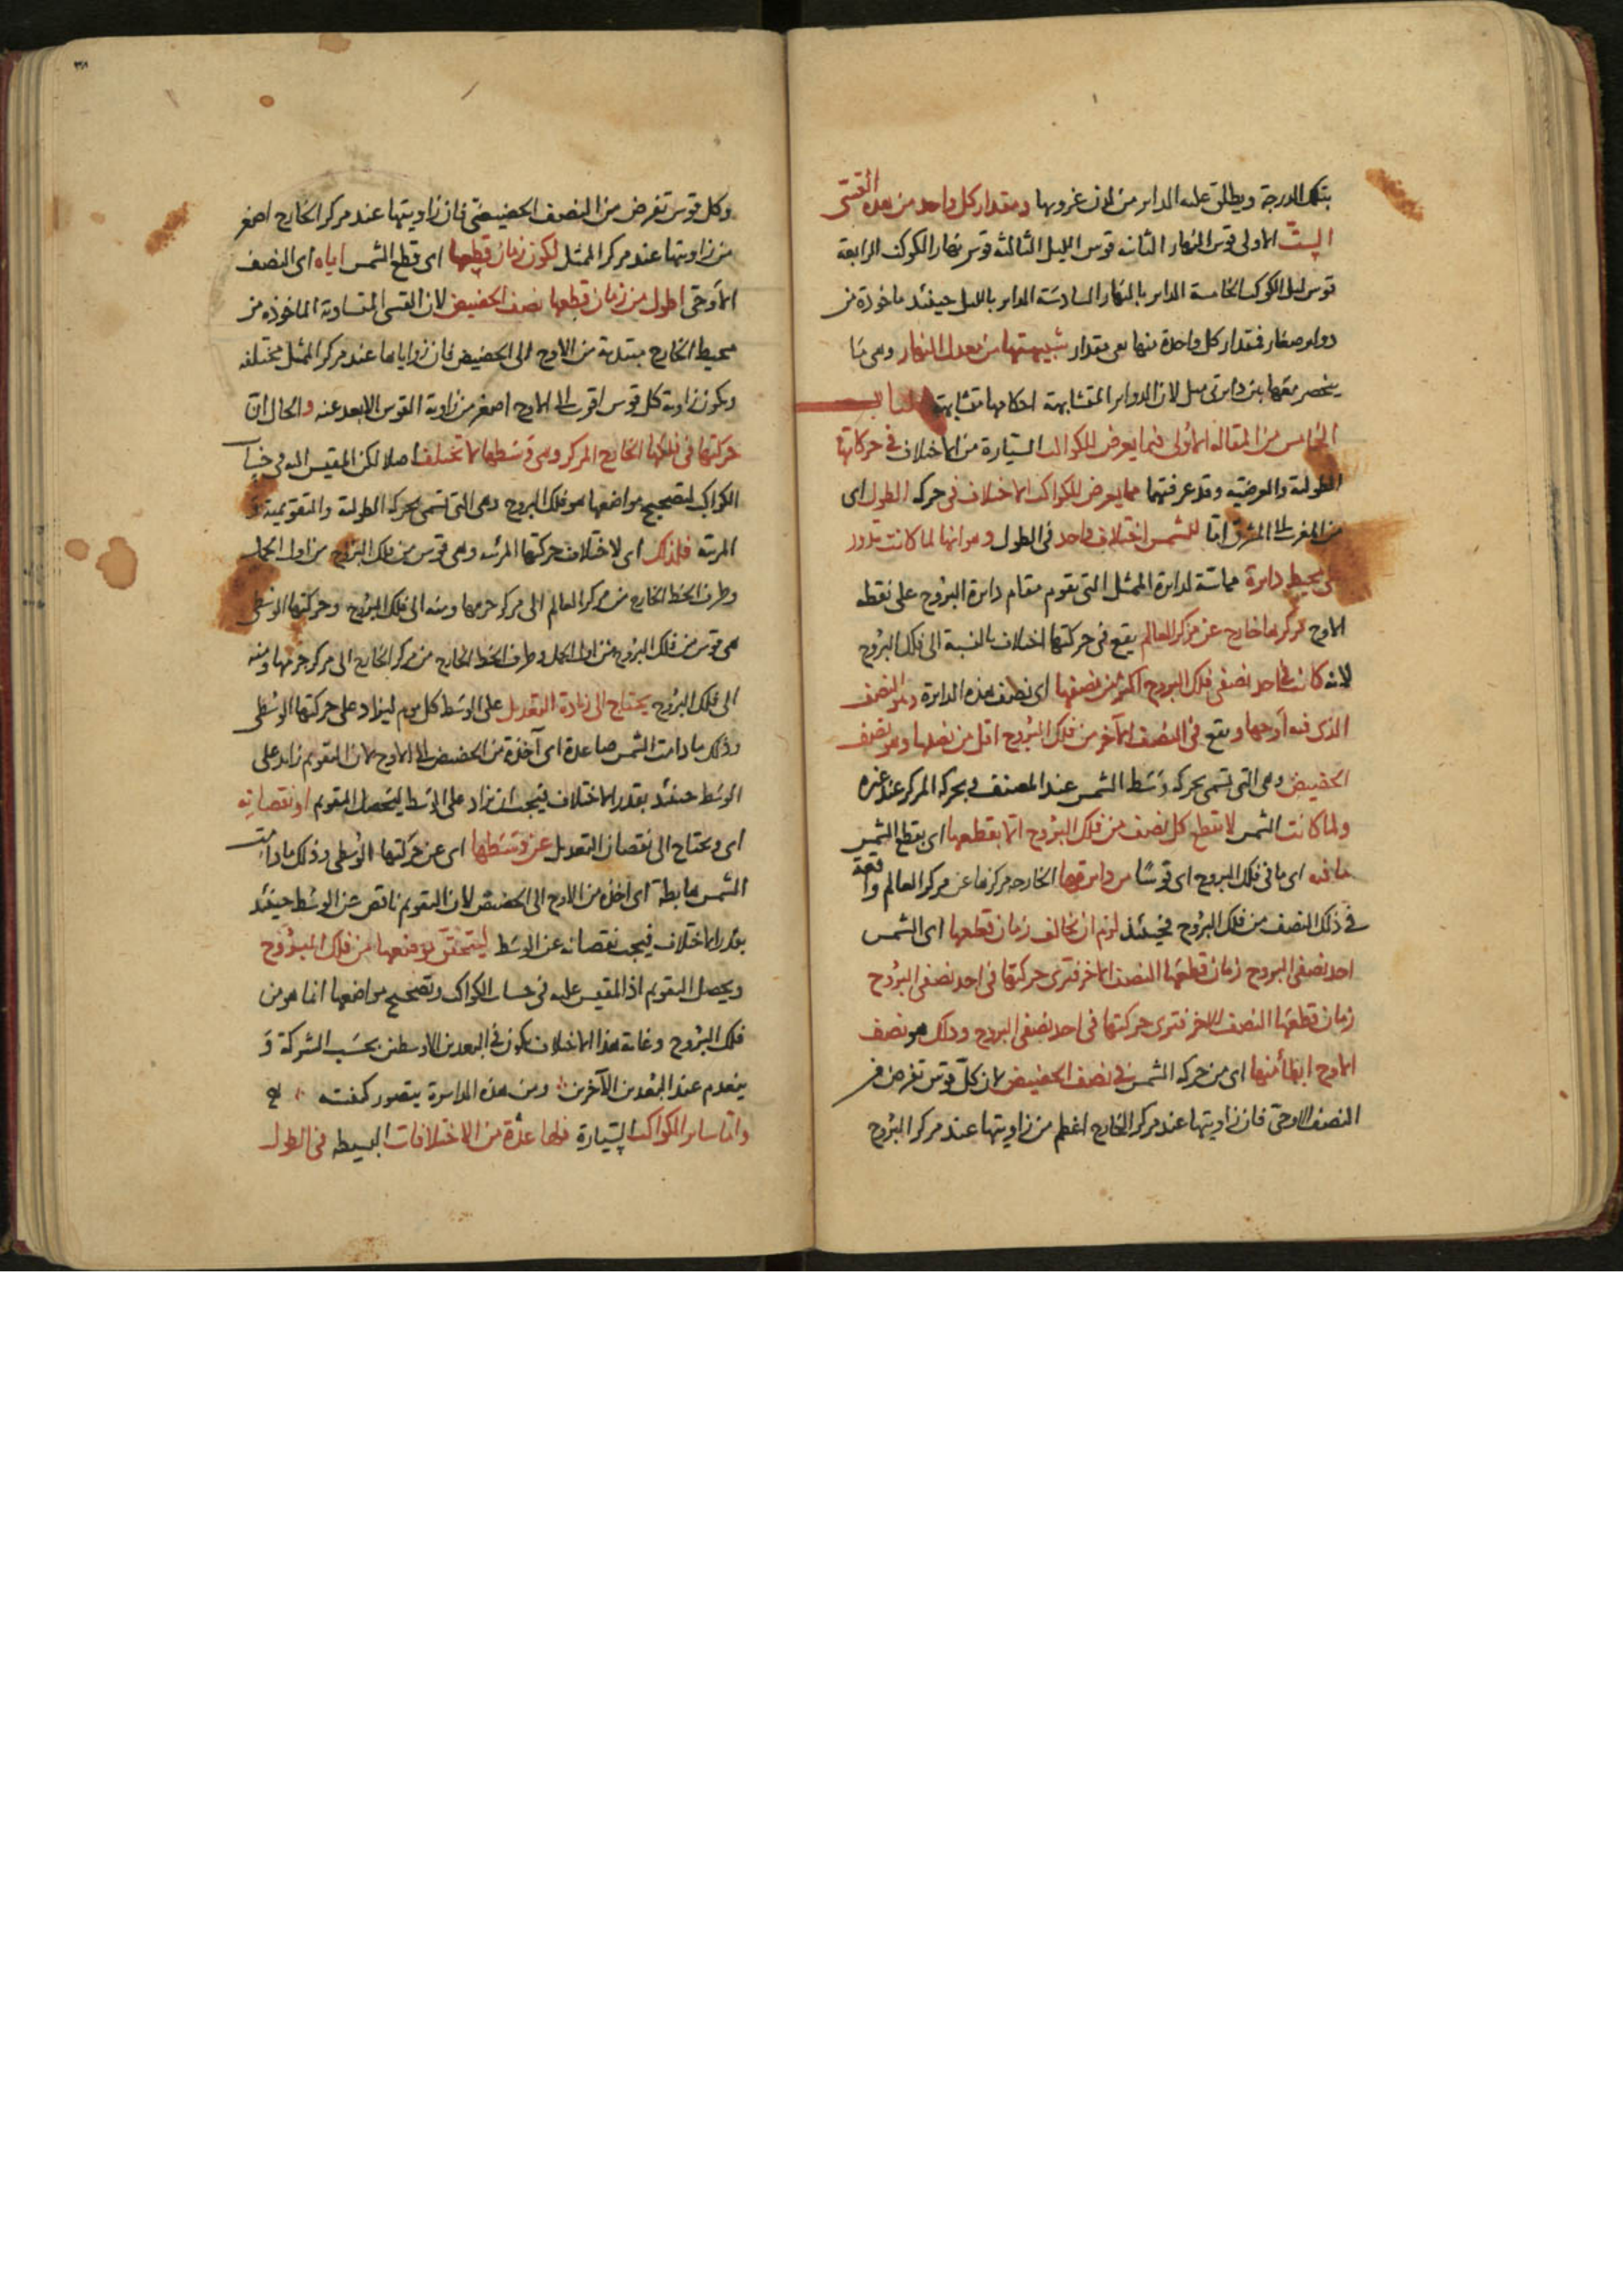 بتلك الدرجة ويطلق عليه الداير من لدن غروبها ومقدار كل واحد من هذه القسى
الست الاولى قوس النهار الثانية قوس الليل الثالثة قوس نهار الكوكب الرابعة
قوس ليل الكوكب الخامسة الداير بالنهار السادسة الداير بالليل حينئذ ماخوذة من
دواير صغار فمقدار كل واحدة منها هى مقدار شبيهتها من معدل النهار وهى ما
ينحصر معها بين دايرتى ميل لان الدواير المتشابهة احكامها متشابهة الباب
الخامس من المقالة الاولى فيما يعرض للكواكب السيارة من الاختلاف فى حركاتها
الطولية والعرضية وقد عرفتهما مما يعرض للكواكب الاختلاف فى حركة الطول اى
من المغرب الى المشرق اما للشمس اختلاف واحد فى الطول وهو انها لما كانت تدور
على محيط دايرة مماسة لدايرة الممثل التى تقوم مقام دايرة البروج على نقطة
الاوج مركزها خارج عن مركز العالم يقع فى حركتها اختلاف بالنسبة الى فلك البروج
لانه كانت فى احد نصفى فلك البروج اكثر من نصفها اى نصف هذه الدايرة وهو النصف
الذى فيه اوجها ويقع فى النصف الآخر من فلك البروج اقل من نصفها وهو نصف
الحضيض وهى التى تسمى بحركة وسط الشمس عند المصنف وبحركة المركز عند غيره
ولما كانت الشمس لا تقطع كل نصف من فلك البروج انما بقطعها اى بقطع الشمس
ما فيه اى ما فى فلك البروج اى قوسا من دايرتها الخارجة مركزها عن مركز العالم واقعة
فى ذلك النصف من فلك البروج فحينئذ لزم ان تخالف زمان قطعها اى الشمس
احد نصفى البروج زمان قطعها النصف الاخر فترى حركتها فى احد نصفى البروج
زمان قطعها النصف الاخر فترى حركتها فى احد نصفى البروج وذلك هو نصف
الاوج ابطأ منها اى من حركة الشمس فى نصف الحضيض لان كل قوس تفرض من
النصف الاوجى فان زاويتها عند مركز الخارج اعظم من زاويتها عند مركز البروج
وكل قوس تفرض من النصف الحضيضى فان زاويتها عند مركز الخارج اصغر
من زاويتها عند مركز الممثل لكون زمان قطعها اى قطع الشمس اياه اى النصف
الاوجى اطول من زمان قطعها نصف الحضيض لان القسى المتساوية الماخوذة من
محيط الخارج مبتدية من الاوج الى الحضيض فان زواياها عند مركز الممثل مختلفة
ويكون زاوية كل قوس اقرب الى الاوج اصغر من زاوية القوس الابعد عنه والحال ان
حركتها فى فلكها الخارج المركز وهى وسطها لا تختلف اصلا لكن المقيس اليه فى حساب
الكواكب لتصحيح مواضعها هو فلك البروج وهى التى تسمى بحركة الطولية والتقويمية و
المرئية فلذلك اى لاختلاف حركتها المرئية وهى قوس من فلك البروج من اول الحمل
وطرف الخط الخارج من مركز العالم الى مركز جرمها ومنه الى فلك البروج وحركتها الوسطى
هى قوس من فلك البروج من اول الحمل وطرف الخط الخارج من مركز الخارج الى مركز جرمها ومنه
الى فلك البروج يحتاج الى زيادة التعديل على الوسط كل يوم ليزاد على حركتها الوسطى
وذلك ما دامت الشمس صاعدة اى آخذة من الحضيض الى الاوج لان التقويم زايد على
الوسط حينئذ بقدر الاختلاف فيجب ان يزاد على الوسط ليحصل التقويم او نقصانه
اى ويحتاج الى نقصان التعديل عن وسطها اى عن حركتها الوسطى وذلك ما دامت
الشمس هابطة اى آخذة من الاوج الى الحضيض لان التقويم ناقص عن الوسط حينئذ
بقدر الاختلاف فيجب نقصانه عن الوسط ليتحقق موضعها من فلك البروج
ويحصل التقويم اذ المقيس عليه فى حساب الكواكب وتصحيح مواضعها انما هو من
فلك البروج وغاية هذا الاختلاف يكون فى البعدين الاوسطين بحسب الشركة و
ينعدم عند البعدين الآخرين ومن هذه الدايرة يتصور كيفيته
واما ساير الكواكب السيارة فلها عدة من الاختلافات البسيطة فى الطول